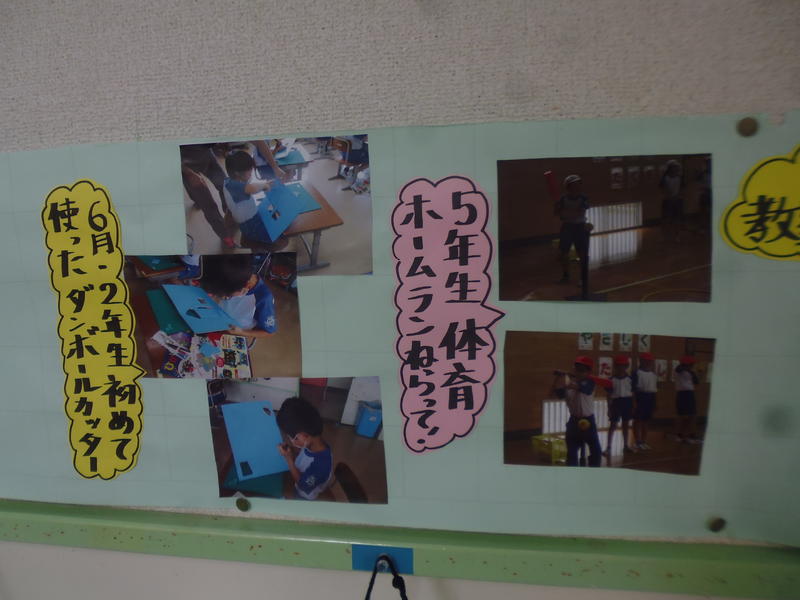 6月・2年生 初めて
使った ダンボールカッター
5年生 体育
ホームランねらって!
教
やさしく